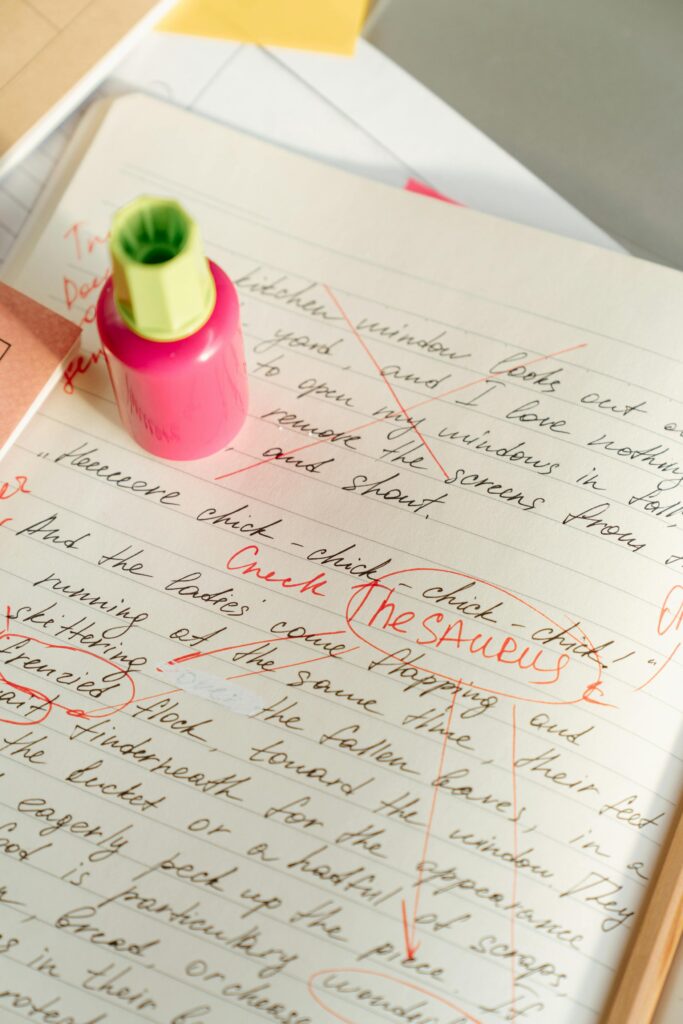 kitchen window looks out o
yard, and I love nothing
to open my windows in fall,
remove the screens from t
, and shout.
„Heeeeere chick - chick - chick - chick!"
Check TheSAURUS
And the ladies come flapping and
running at the same time, their feet
skittering over the fallen leaves, in a
frenzied flock, toward the window. They
wait underneath for the appearance
the bucket or a hadful of scraps,
eagerly peck up the piece. If
ood is particulary wonder
, bread or cheese
in their